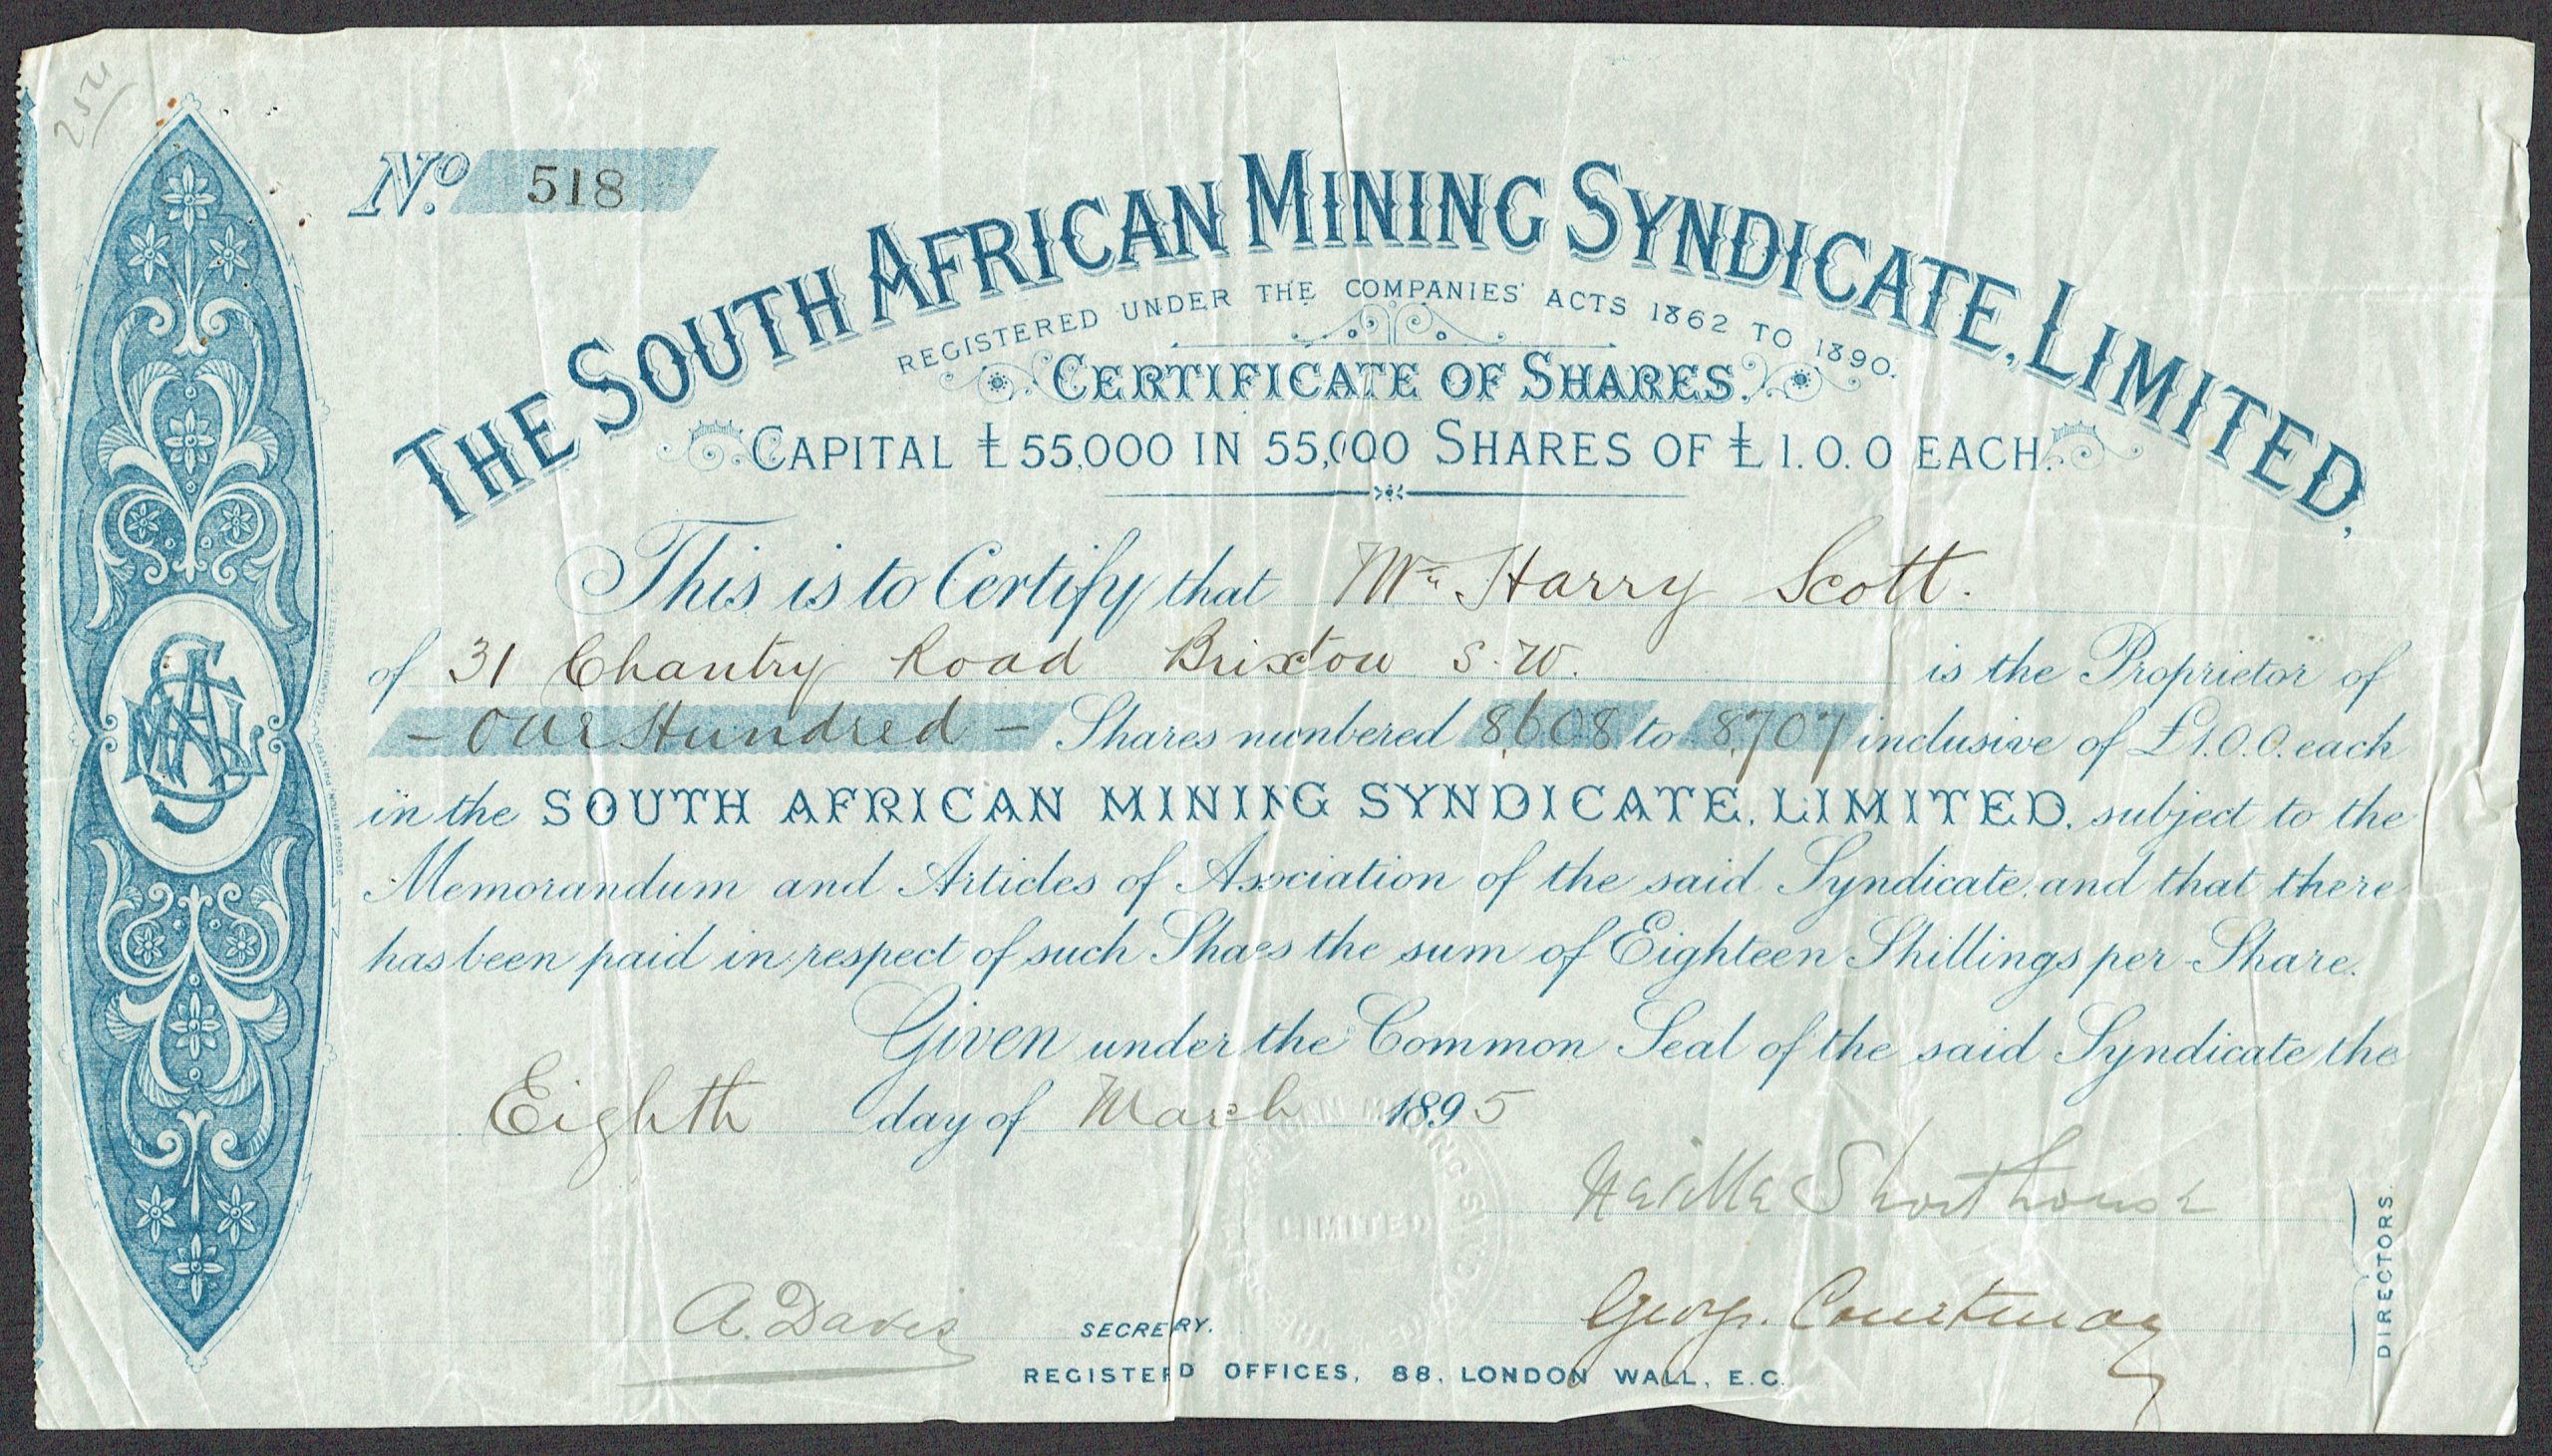 254
No. 518
THE SOUTH AFRICAN MINING SYNDICATE, LIMITED.
REGISTERED UNDER THE COMPANIES' ACTS 1862 TO 1890.
CERTIFICATE OF SHARES.
CAPITAL £55,000 IN 55,000 SHARES OF £1.0.0 EACH.
This is to Certify that Mr. Harry Scott.
of 31 Chantry Road Brixton S.W. is the Proprietor of
- One Hundred - Shares numbered 8,608 to 8,707 inclusive of £1.0.0. each
in the SOUTH AFRICAN MINING SYNDICATE, LIMITED, subject to the
Memorandum and Articles of Association of the said Syndicate, and that there
has been paid in respect of such Shaes the sum of Eighteen Shillings per Share.
Given under the Common Seal of the said Syndicate the
Eighth day of March 1895
Neville Shorthouse
LIMITED
A. Davis SECRERY. George Courtenay
DIRECTORS.
REGISTERD OFFICES, 88, LONDON WALL, E.C.